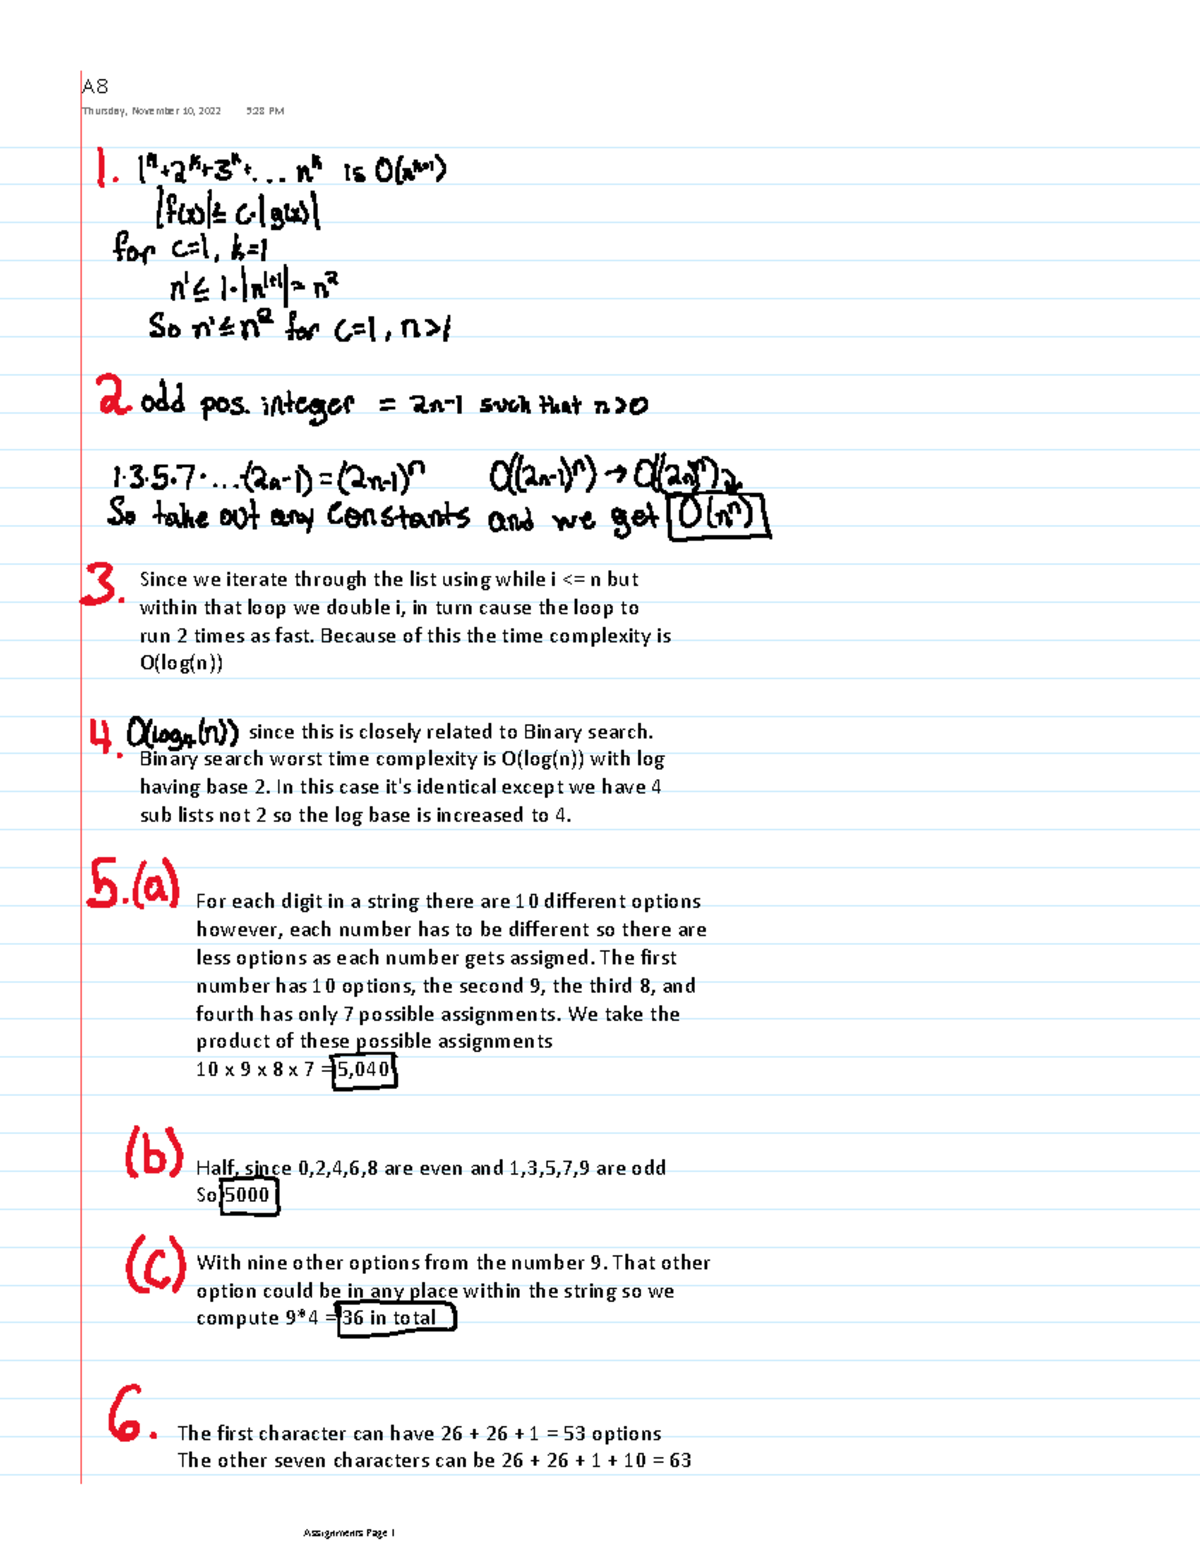 A8
Thursday, November 10, 2022 5:28 PM
1. 1^k+2^k+3^k+... n^k is O(n^(k+1))
|f(x)|≤ c·|g(x)|
for c=1, k=1
n^1≤ 1·|n^(1+1)|= n^2
So n^1≤n^2 for c=1, n>1
2 odd pos. integer = 2n-1 such that n>0
1·3·5·7·...·(2n-1)=(2n-1)^n O((2n-1)^n)→O((2n)^n)
So take out any constants and we get O(n^n)
3. Since we iterate through the list using while i <= n but
within that loop we double i, in turn cause the loop to
run 2 times as fast. Because of this the time complexity is
O(log(n))
4. O(log₄(n)) since this is closely related to Binary search.
Binary search worst time complexity is O(log(n)) with log
having base 2. In this case it's identical except we have 4
sub lists not 2 so the log base is increased to 4.
5.(a) For each digit in a string there are 10 different options
however, each number has to be different so there are
less options as each number gets assigned. The first
number has 10 options, the second 9, the third 8, and
fourth has only 7 possible assignments. We take the
product of these possible assignments
10 x 9 x 8 x 7 = 5,040
(b) Half, since 0,2,4,6,8 are even and 1,3,5,7,9 are odd
So 5000
(c) With nine other options from the number 9. That other
option could be in any place within the string so we
compute 9*4 = 36 in total
6. The first character can have 26 + 26 + 1 = 53 options
The other seven characters can be 26 + 26 + 1 + 10 = 63
Assignments Page 1